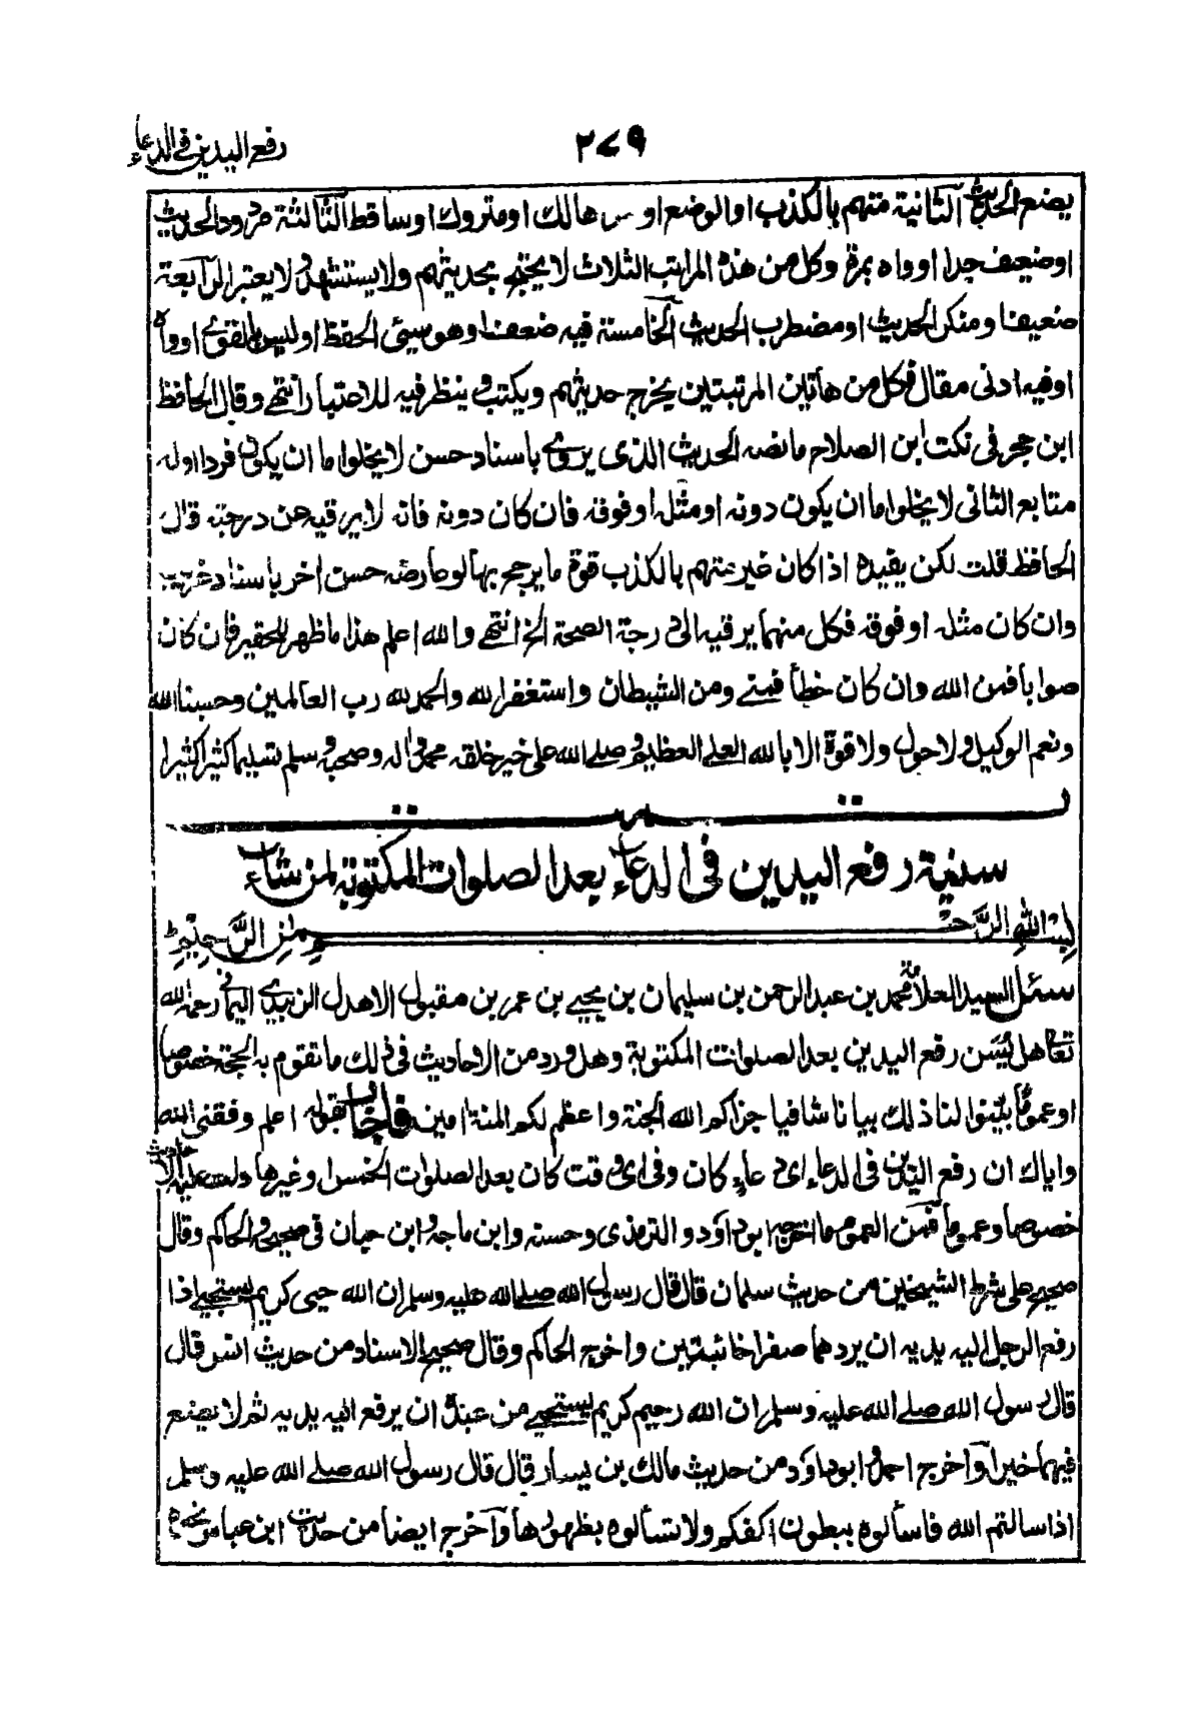 رفع اليدين فى الدعاء
٢٧٩
يضع الحديث الثانية متهم بالكذب او الوضع او هالك او متروك او ساقط الثالثة مردود الحديث
او ضعيف جدا او واه بمرة وكل من هذه المراتب الثلاث لا يحتج بحديثهم ولا يستشهد ولا يعتبر الرابعة
ضعيف او منكر الحديث او مضطرب الحديث الخامسة فيه ضعف او هو سيئى الحفظ او ليس بالقوى او واه
او فيه ادنى مقال فكل من هاتين المرتبتين يخرج حديثهم ويكتب وينظر فيه للاختبار انتهى وقال الحافظ
ابن حجر فى نكت ابن الصلاح ما نصه الحديث الذى يروى باسناد حسن لا يخلوا ما ان يكون فردا اوله
متابع الثانى لا يخلوا ما ان يكون دونه او مثله او فوقه فان كان دونه فانه لا يرقيه عن درجته قال
الحافظ قلت لكن يقيده اذا كان غير متهم بالكذب قوة ما يرجح بها لو عارضه حسن اخر باسناد غريب
وان كان مثله او فوقه فكل منهما يرقيه الى درجة الصحة الخ انتهى والله اعلم هذا ما ظهر للحقير فان كان
صوابا فمن الله وان كان خطأ فمنى ومن الشيطان واستغفر الله والحمد لله رب العالمين وحسبنا الله
ونعم الوكيل ولا حول ولا قوة الا بالله العلى العظيم وصلى الله على خير خلقه محمد واله وصحبه وسلم تسليما كثيرا كثيرا
تمت
سنية رفع اليدين فى الدعاء بعد الصلوات المكتوبة لمن شاء
بسم الله الرحمن الرحيم
سئل السيد العلامة محمد بن عبد الرحمن بن سليمان بن يحيى بن عمر بن مقبول الاهدل الزبيدى اليمانى رحمه الله
تعالى هل يسن رفع اليدين بعد الصلوات المكتوبة وهل ورد من الاحاديث فى ذلك ما تقوم به الحجة خصوصا
او عموما بينوا لنا ذلك بيانا شافيا جزاكم الله الجنة واعظم لكم المنة امين فاجاب بقوله اعلم وفقنى الله
واياك ان رفع اليدين فى الدعاء اى دعاء كان وفى اى وقت كان بعد الصلوات الخمس او غيرها دلت عليه الاحاديث
خصوصا وعموما فمن العموم ما اخرجه ابو داؤد والترمذى وحسنه وابن ماجه وابن حبان فى صحيحه والحاكم وقال
صحيح على شرط الشيخين من حديث سلمان قال قال رسول الله صلى الله عليه وسلم ان الله حيى كريم يستحيى اذا
رفع الرجل اليه يديه ان يردهما صفرا خائبتين واخرج الحاكم وقال صحيح الاسناد من حديث انس قال
قال رسول الله صلى الله عليه وسلم ان الله رحيم كريم يستحيى من عبده ان يرفع اليه يديه ثم لا يضع
فيهما خيرا واخرج احمد وابو داؤد من حديث مالك بن يسار قال قال رسول الله صلى الله عليه وسلم
اذا سالتم الله فاسألوه ببطون اكفكم ولا تسألوه بظهورها واخرج ايضا من حديث ابن عباس نحوه